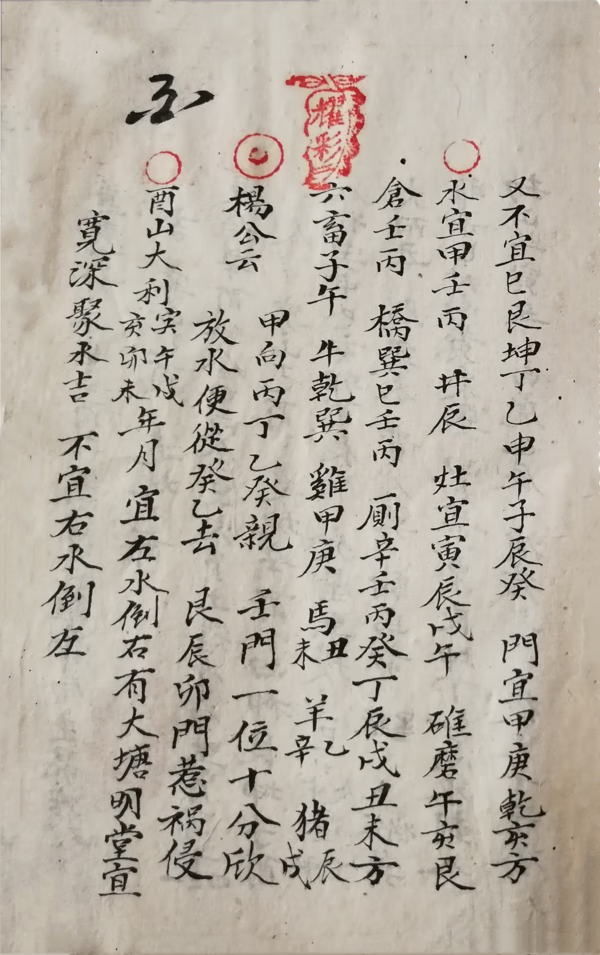 又不宜巳艮坤丁乙申午子辰癸　門宜甲庚乾亥方
水宜甲壬丙　井辰　灶宜寅辰戌午　碓磨午亥艮
倉壬丙　橋巽巳壬丙　厠辛壬丙癸丁辰戌丑未方
六畜子午　牛乾巽　雞甲庚　馬丑未　羊乙辛　猪辰戌
楊公云　甲向丙丁乙癸親　壬門一位十分欣
放水便從癸乙去　艮辰卯門惹禍侵
酉山大利寅午戌亥卯未年月　宜左水倒右有大塘明堂宜
寬深聚水吉　不宜右水倒左
耀彩